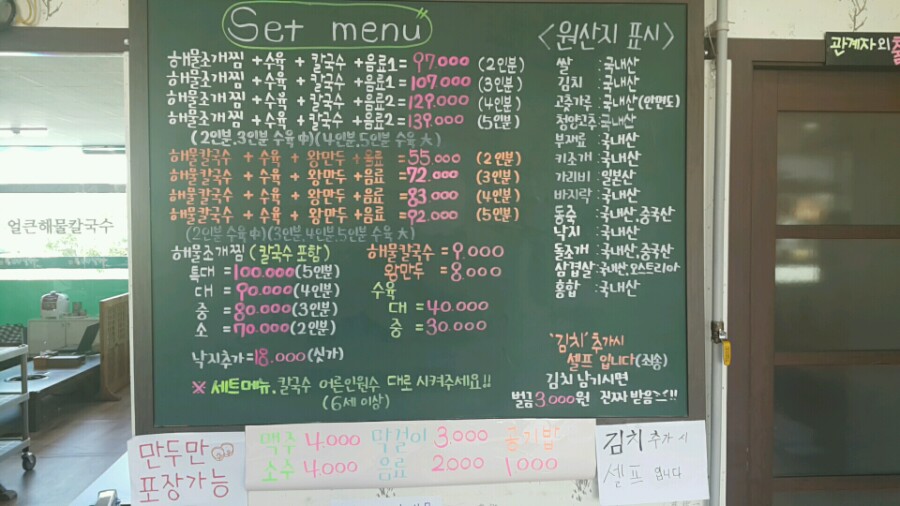 Set menu
해물조개찜 + 수육 + 칼국수 + 음료1 = 97.000 (2인분)
해물조개찜 + 수육 + 칼국수 + 음료1 = 107.000 (3인분)
해물조개찜 + 수육 + 칼국수 + 음료2 = 129.000 (4인분)
해물조개찜 + 수육 + 칼국수 + 음료2 = 139.000 (5인분)
(2인분,3인분 수육 中)(4인분,5인분 수육 大)
해물칼국수 + 수육 + 왕만두 + 음료 = 55.000 (2인분)
해물칼국수 + 수육 + 왕만두 + 음료 = 72.000 (3인분)
해물칼국수 + 수육 + 왕만두 + 음료 = 83.000 (4인분)
해물칼국수 + 수육 + 왕만두 + 음료 = 92.000 (5인분)
(2인분 수육 中)(3인분,4인분,5인분 수육 大)
해물조개찜 (칼국수 포함)
특대 = 100.000 (5인분)
대 = 90.000 (4인분)
중 = 80.000 (3인분)
소 = 70.000 (2인분)
해물칼국수 = 9.000
왕만두 = 8.000
수육
대 = 40.000
중 = 30.000
낙지추가 = 18.000 (싯가)
※ 세트메뉴.칼국수 어른인원수 대로 시켜주세요!!
(6세 이상)
<원산지 표시>
쌀 : 국내산
김치 : 국내산
고춧가루 : 국내산(안면도)
청양고추 : 국내산
부재료 : 국내산
키조개 : 국내산
가리비 : 일본산
바지락 : 국내산
동죽 : 국내산,중국산
낙지 : 국내산
돌조개 : 국내산,중국산
삼겹살 : 국내산,오스트리아
홍합 : 국내산
"김치" 추가시
셀프 입니다(죄송)
김치 남기시면
벌금 3000원 진짜 받음!!
관계자외 출
얼큰해물칼국수
만두만
포장가능
맥주 4.000 막걸이 3.000 공기밥
소주 4.000 음료 2000 1000
김치 추가 시
셀프 입니다